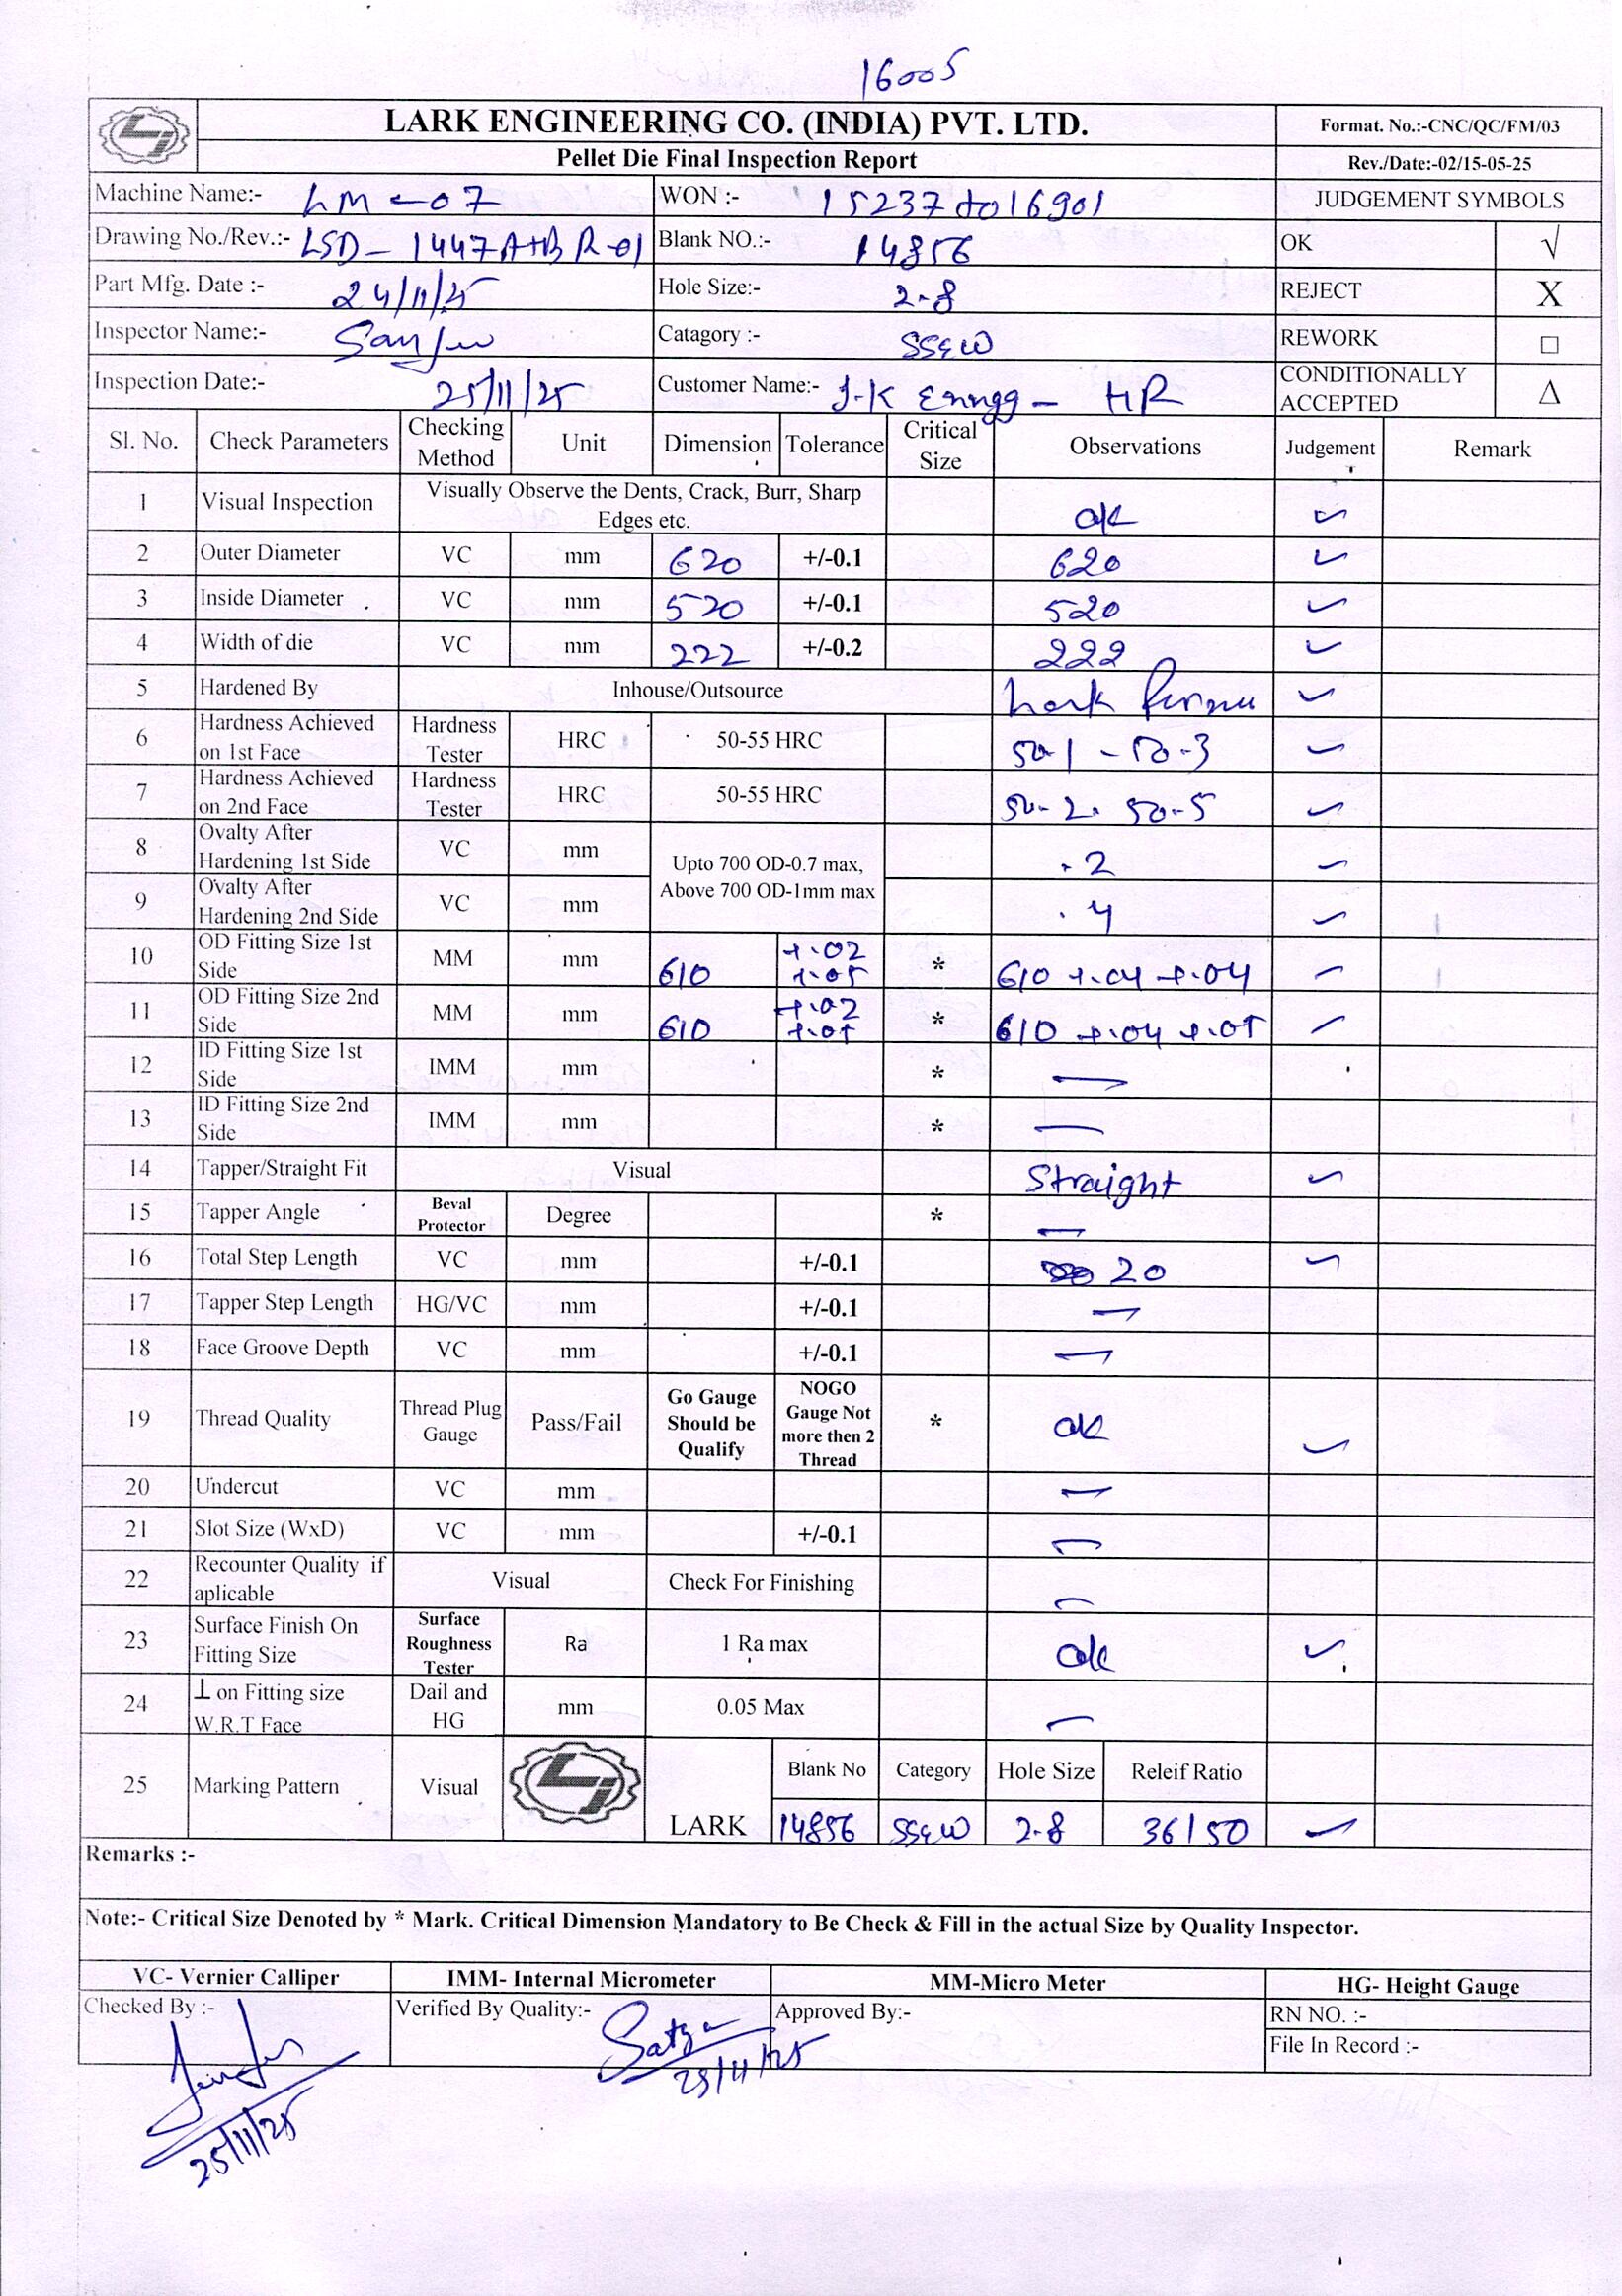 16005
LARK ENGINEERING CO. (INDIA) PVT. LTD.
Format. No.:-CNC/QC/FM/03
Pellet Die Final Inspection Report
Rev./Date:-02/15-05-25
Machine Name:- LM-07 WON :- 15237 to 16901 JUDGEMENT SYMBOLS
Drawing No./Rev.:- LSD-1447A+B R-01 Blank NO.:- 14856 OK √
Part Mfg. Date :- 24/11/25 Hole Size:- 2.8 REJECT X
Inspector Name:- Catagory :- SS4W REWORK □
Inspection Date:- 25/11/25 Customer Name:- J.K Enngg - HR CONDITIONALLY ACCEPTED Δ
Sl. No. Check Parameters Checking Method Unit Dimension Tolerance Critical Size Observations Judgement Remark
1 Visual Inspection Visually Observe the Dents, Crack, Burr, Sharp Edges etc. ok ✓
2 Outer Diameter VC mm 620 +/-0.1 620 ✓
3 Inside Diameter VC mm 520 +/-0.1 520 ✓
4 Width of die VC mm 222 +/-0.2 222 ✓
5 Hardened By Inhouse/Outsource Lark ✓
6 Hardness Achieved on 1st Face Hardness Tester HRC 50-55 HRC 50.1 - 50.3 ✓
7 Hardness Achieved on 2nd Face Hardness Tester HRC 50-55 HRC 50.2. 50.5 ✓
8 Ovalty After Hardening 1st Side VC mm Upto 700 OD-0.7 max, Above 700 OD-1mm max .2 ✓
9 Ovalty After Hardening 2nd Side VC mm .4 ✓
10 OD Fitting Size 1st Side MM mm 610 +.02 +.05 * 610 +.04 +.04 ✓
11 OD Fitting Size 2nd Side MM mm 610 +.02 +.05 * 610 +.04 +.05 ✓
12 ID Fitting Size 1st Side IMM mm * —
13 ID Fitting Size 2nd Side IMM mm * —
14 Tapper/Straight Fit Visual Straight ✓
15 Tapper Angle Beval Protector Degree * —
16 Total Step Length VC mm +/-0.1 20 ✓
17 Tapper Step Length HG/VC mm +/-0.1 —
18 Face Groove Depth VC mm +/-0.1 —
19 Thread Quality Thread Plug Gauge Pass/Fail Go Gauge Should be Qualify NOGO Gauge Not more then 2 Thread * ok ✓
20 Undercut VC mm —
21 Slot Size (WxD) VC mm +/-0.1 —
22 Recounter Quality if aplicable Visual Check For Finishing —
23 Surface Finish On Fitting Size Surface Roughness Tester Ra 1 Ra max ok ✓
24 ⊥ on Fitting size W.R.T Face Dail and HG mm 0.05 Max —
25 Marking Pattern Visual LARK Blank No Category Hole Size Releif Ratio
14856 SS4W 2.8 36/50 ✓
Remarks :-
Note:- Critical Size Denoted by * Mark. Critical Dimension Mandatory to Be Check & Fill in the actual Size by Quality Inspector.
VC- Vernier Calliper IMM- Internal Micrometer MM-Micro Meter HG- Height Gauge
Checked By :- Verified By Quality:- Approved By:- RN NO. :-
File In Record :-
25/11/25
25/11/25